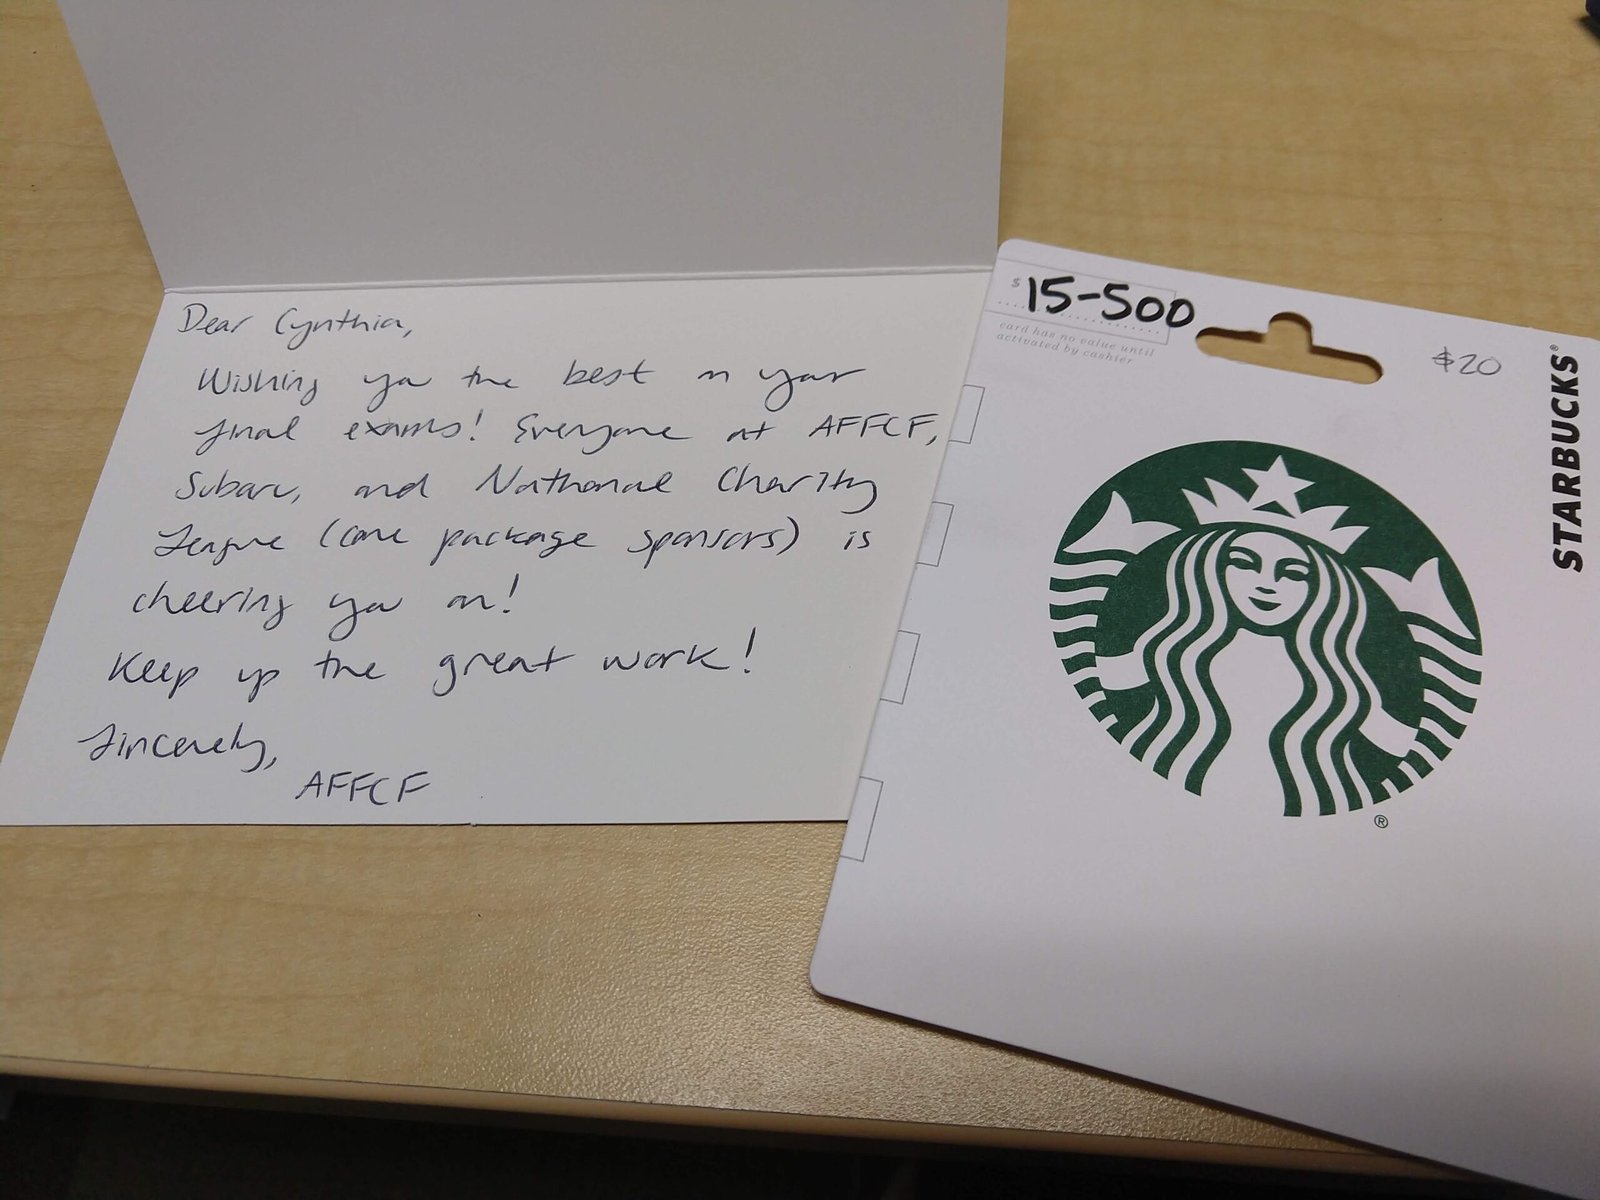 Dear Cynthia,
Wishing you the best on your
final exams! Everyone at AFFCF,
Subaru, and National Charity
League (care package sponsors) is
cheering you on!
Keep up the great work!
Sincerely,
AFFCF
$15-500
card has no value until
activated by cashier
$20
STARBUCKS®
®